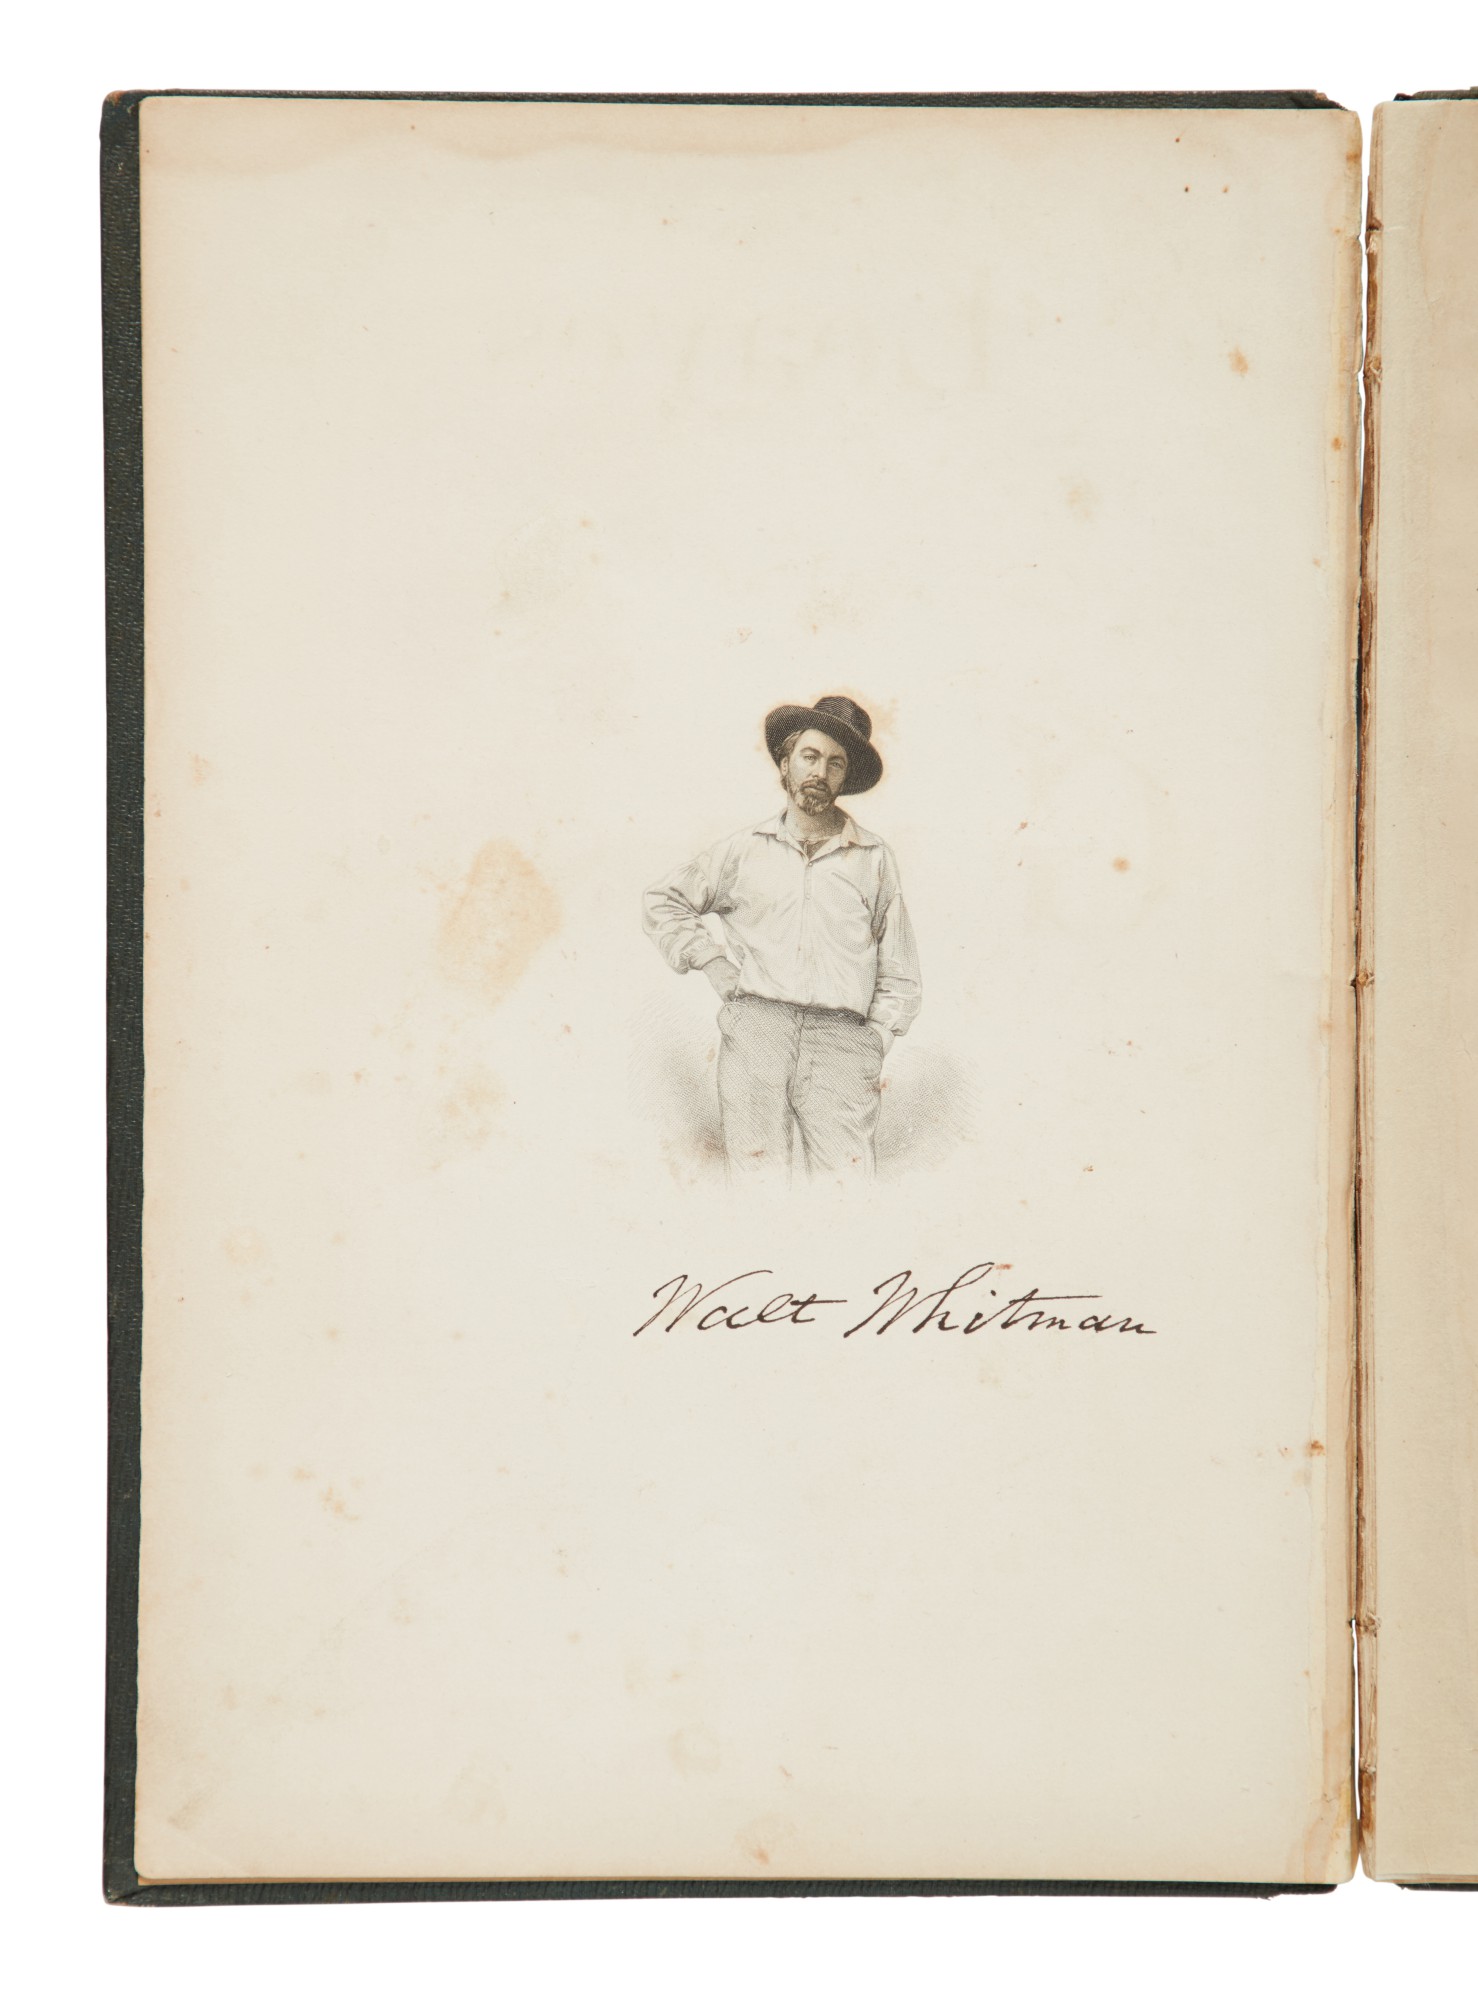 Walt Whitman